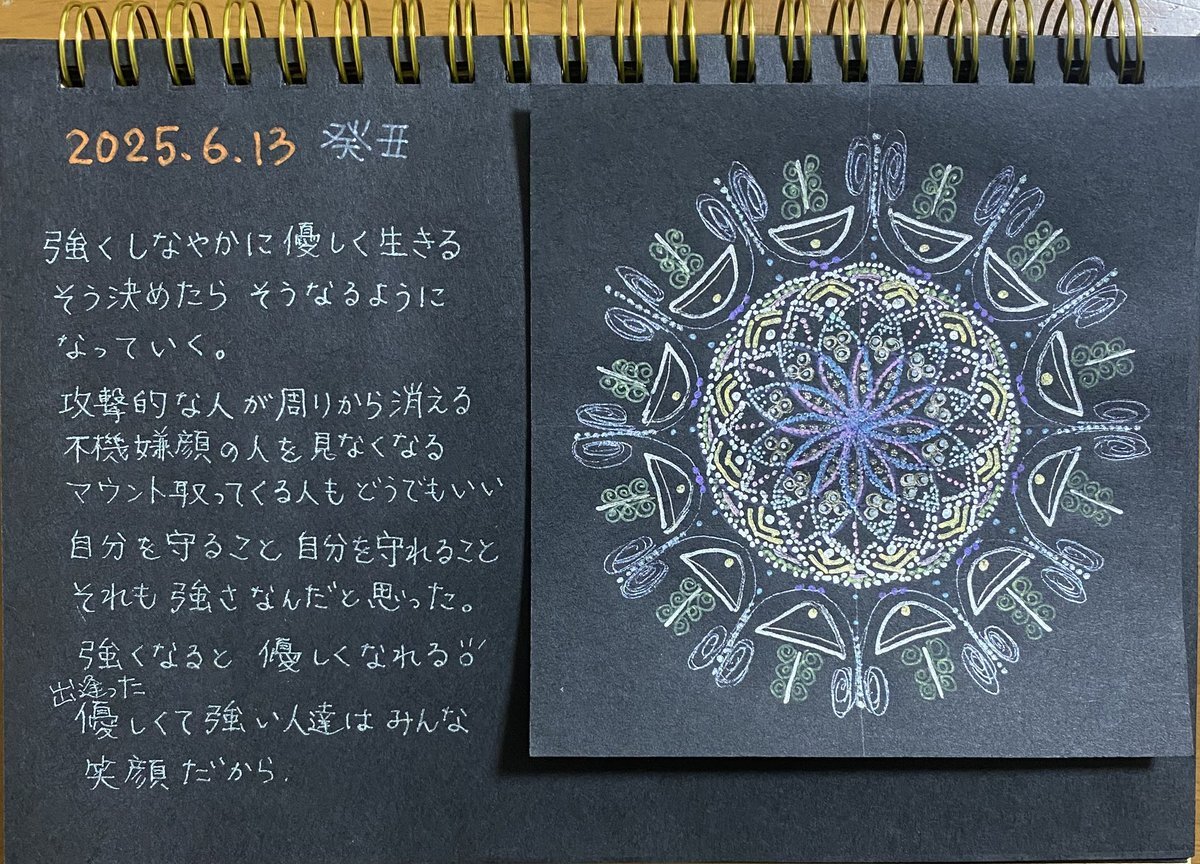 2025.6.13 癸丑
強くしなやかに優しく生きる
そう決めたら そうなるように
なっていく。
攻撃的な人が周りから消える
不機嫌顔の人を見なくなる
マウント取ってくる人もどうでもいい
自分を守ること 自分を守れること
それも強さなんだと思った。
強くなると 優しくなれる
出逢った
優しくて強い人達はみんな
笑顔だから.